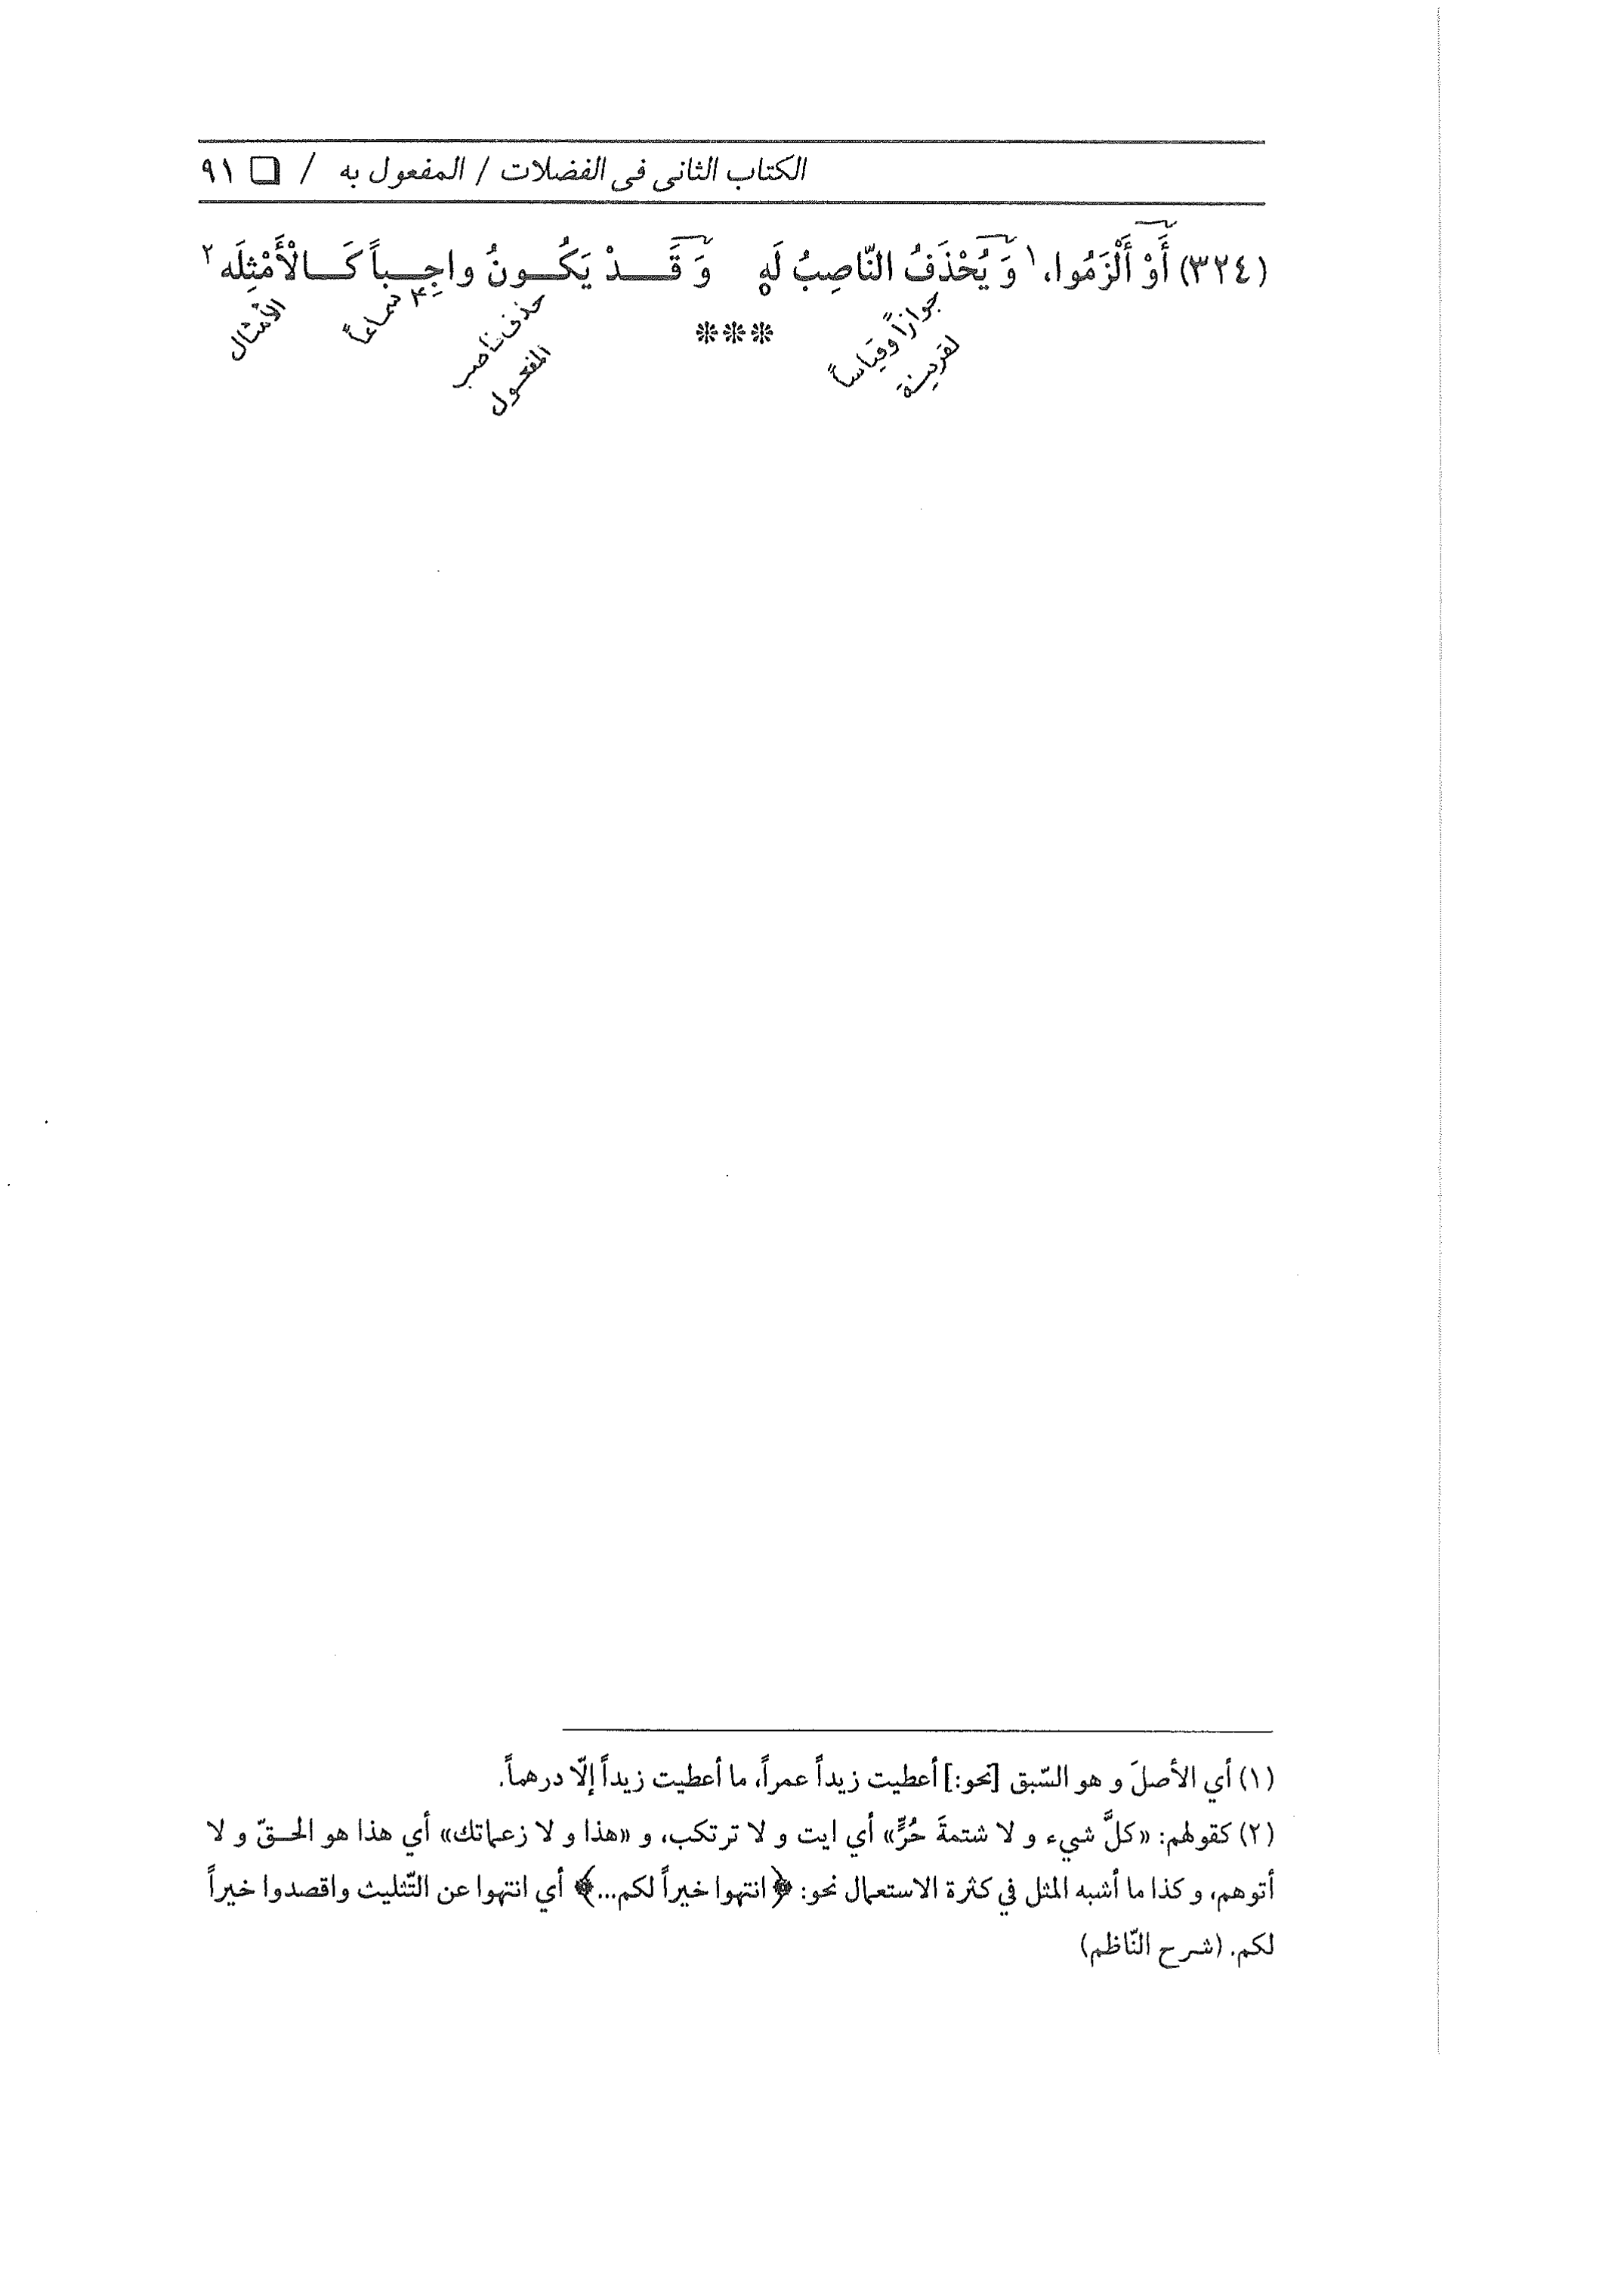 الكتاب الثانى فى الفضلات / المفعول به / ❏ ٩١
(٣٢٤) أَوْ أَلْزَمُوا،١ وَ يُحْذَفُ النّاصِبُ لَهٖ وَ قَدْ يَكُونُ واجِباً كَالْأَمْثِلَه٢
جوازاً وقياساً
لقرينة
حذف ناصب
المفعول
سماعاً
الأمثال
***
(١) أي الأصلَ و هو السّبق [نحو:] أعطيت زيداً عمراً، ما أعطيت زيداً إلّا درهماً.
(٢) كقولهم: «كلَّ شيء و لا شتمةَ حُرٍّ» أي ايت و لا ترتكب، و «هذا و لا زعماتك» أي هذا هو الحقّ و لا
أتوهم، و كذا ما أشبه المثل في كثرة الاستعمال نحو: ﴿انتهوا خيراً لكم...﴾ أي انتهوا عن التّثليث واقصدوا خيراً
لكم. (شرح النّاظم)